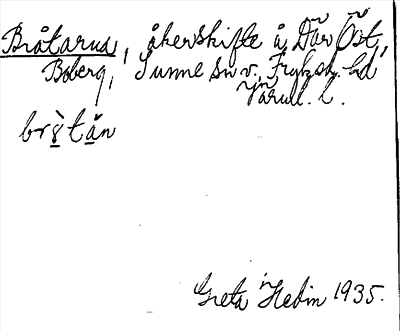 Bråtarna, åkerskifte å Där Öst,
Boberg, Sunne sn v., Fryksd. hd
Värml. l.
br
Greta Hedin 1935.